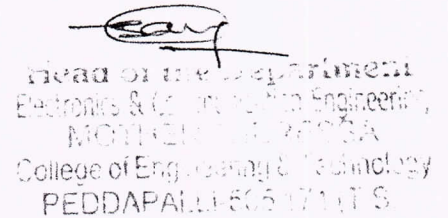 Head of the Department
Electronics & Communication Engineering
MOTHER TERESSA
College of Engineering & Technology
PEDDAPALLI-505 174 (T.S.